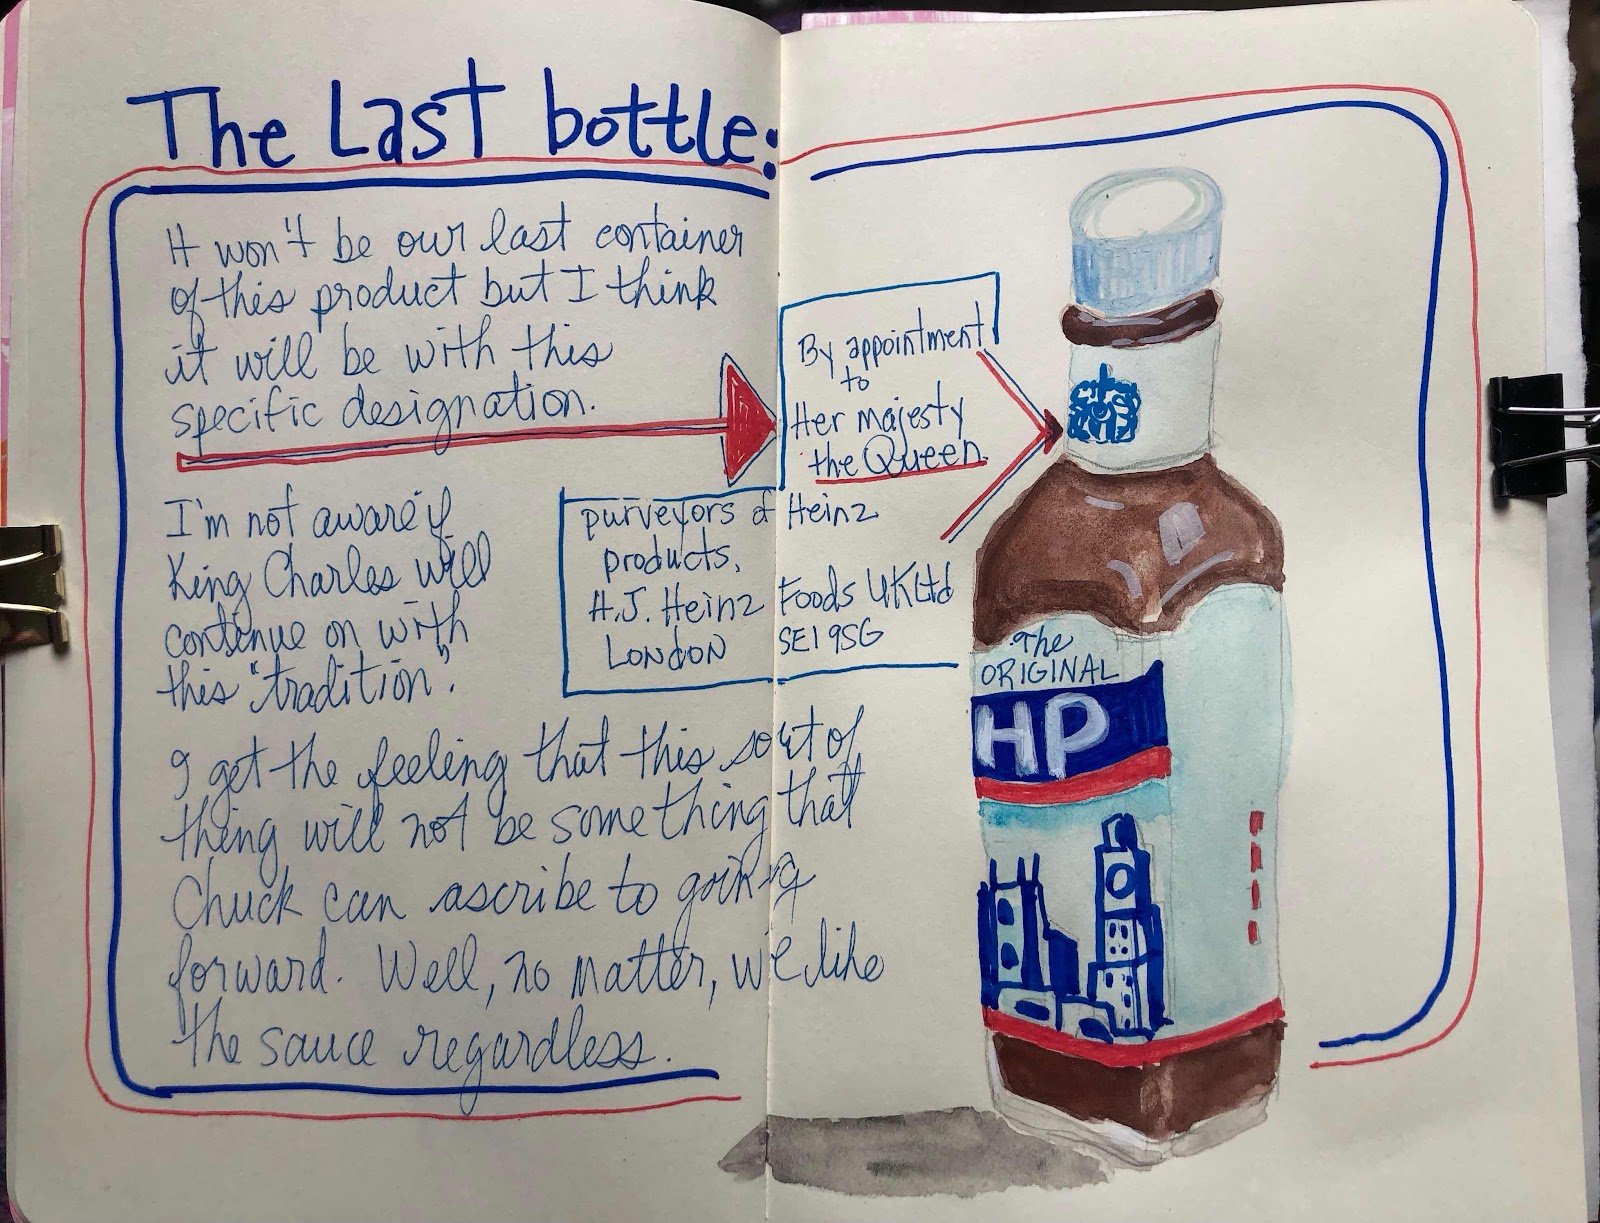 The Last bottle:
It won't be our last container
of this product but I think
it will be with this
specific designation.
I'm not aware if
King Charles will
continue on with
this "tradition".
I get the feeling that this sort of
thing will not be something that
Chuck can ascribe to going
forward. Well, no matter, we like
the sauce regardless.
By appointment
to
Her majesty
the Queen.
purveyors of Heinz
products,
H.J. Heinz Foods UK Ltd
LONDON SE1 9SG
The
ORIGINAL
HP